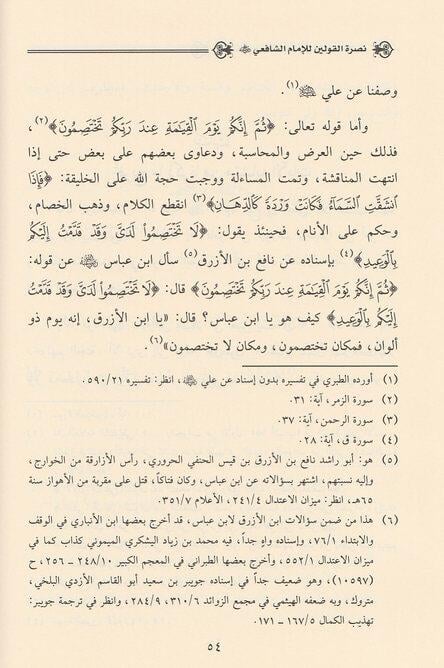 نصرة القولين للإمام الشافعي
وصفنا عن علي ﷺ(١).
وأما قوله تعالى: ﴿ثُمَّ إِنَّكُمْ يَوْمَ الْقِيَامَةِ عِندَ رَبِّكُمْ تَخْتَصِمُونَ﴾(٢)،
فذلك حين العرض والمحاسبة، ودعاوى بعضهم على بعض حتى إذا
انتهت المناقشة، وتمت المساءلة ووجبت حجة الله على الخليقة: ﴿فَإِذَا
انشَقَّتِ السَّمَاءُ فَكَانَتْ وَرْدَةً كَالدِّهَانِ﴾(٣) انقطع الكلام، وذهب الخصام،
وحكم على الأنام، فحينئذ يقول: ﴿لَا تَخْتَصِمُوا لَدَيَّ وَقَدْ قَدَّمْتُ إِلَيْكُم
بِالْوَعِيدِ﴾(٤) بإسناده عن نافع بن الأزرق(٥) سأل ابن عباس عن قوله:
﴿ثُمَّ إِنَّكُمْ يَوْمَ الْقِيَامَةِ عِندَ رَبِّكُمْ تَخْتَصِمُونَ﴾ قال: ﴿لَا تَخْتَصِمُوا لَدَيَّ وَقَدْ قَدَّمْتُ
إِلَيْكُم بِالْوَعِيدِ﴾ كيف هو يا ابن عباس؟ قال: «يا ابن الأزرق، إنه يوم ذو
ألوان، فمكان تختصمون، ومكان لا تختصمون»(٦).
(١) أورده الطبري في تفسيره بدون إسناد عن علي، انظر: تفسيره ٥٩٠/٢١.
(٢) سورة الزمر، آية: ٣١.
(٣) سورة الرحمن، آية: ٣٧.
(٤) سورة ق، آية: ٢٨.
(٥) هو: أبو راشد نافع بن الأزرق بن قيس الحنفي الحروري، رأس الأزارقة من الخوارج،
وإليه نسبتهم، اشتهر بسؤالاته عن ابن عباس، وكان فتاكاً، قتل على مقربة من الأهواز سنة
٦٥هـ، انظر: ميزان الاعتدال ٢٤١/٤، الأعلام ٣٥١/٧.
(٦) هذا من ضمن سؤالات ابن الأزرق لابن عباس، قد أخرج بعضها ابن الأنباري في الوقف
والابتداء ٧٦/١، وإسناده واهٍ جداً، فيه محمد بن زياد اليشكري الميموني كذاب كما في
ميزان الاعتدال ٥٥٢/١، وأخرج بعضها الطبراني في المعجم الكبير ٢٤٨/١٠ ـ ٢٥٦، ح
(١٠٥٩٧)، وهو ضعيف جداً في إسناده جويبر بن سعيد أبو القاسم الأزدي البلخي،
متروك، وبه ضعفه الهيثمي في مجمع الزوائد ٣١٠/٦، ٢٨٤/٩، وانظر في ترجمة جويبر:
تهذيب الكمال ١٦٧/٥ ـ ١٧١.
٥٤